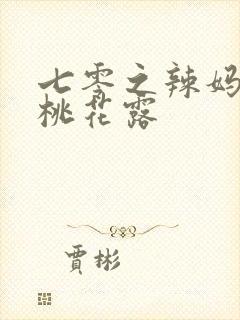 七零之辣妈
桃花露
賈彬